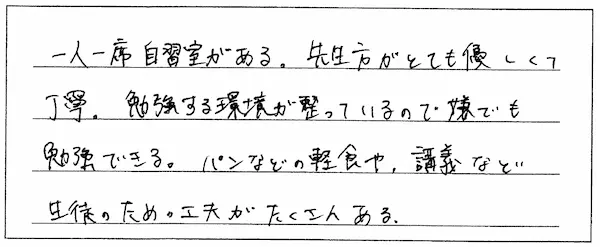 一人一席自習室がある。先生方がとても優しくて
丁寧。勉強する環境が整っているので嫌でも
勉強できる。パンなどの軽食や、講義など
生徒のための工夫がたくさんある。